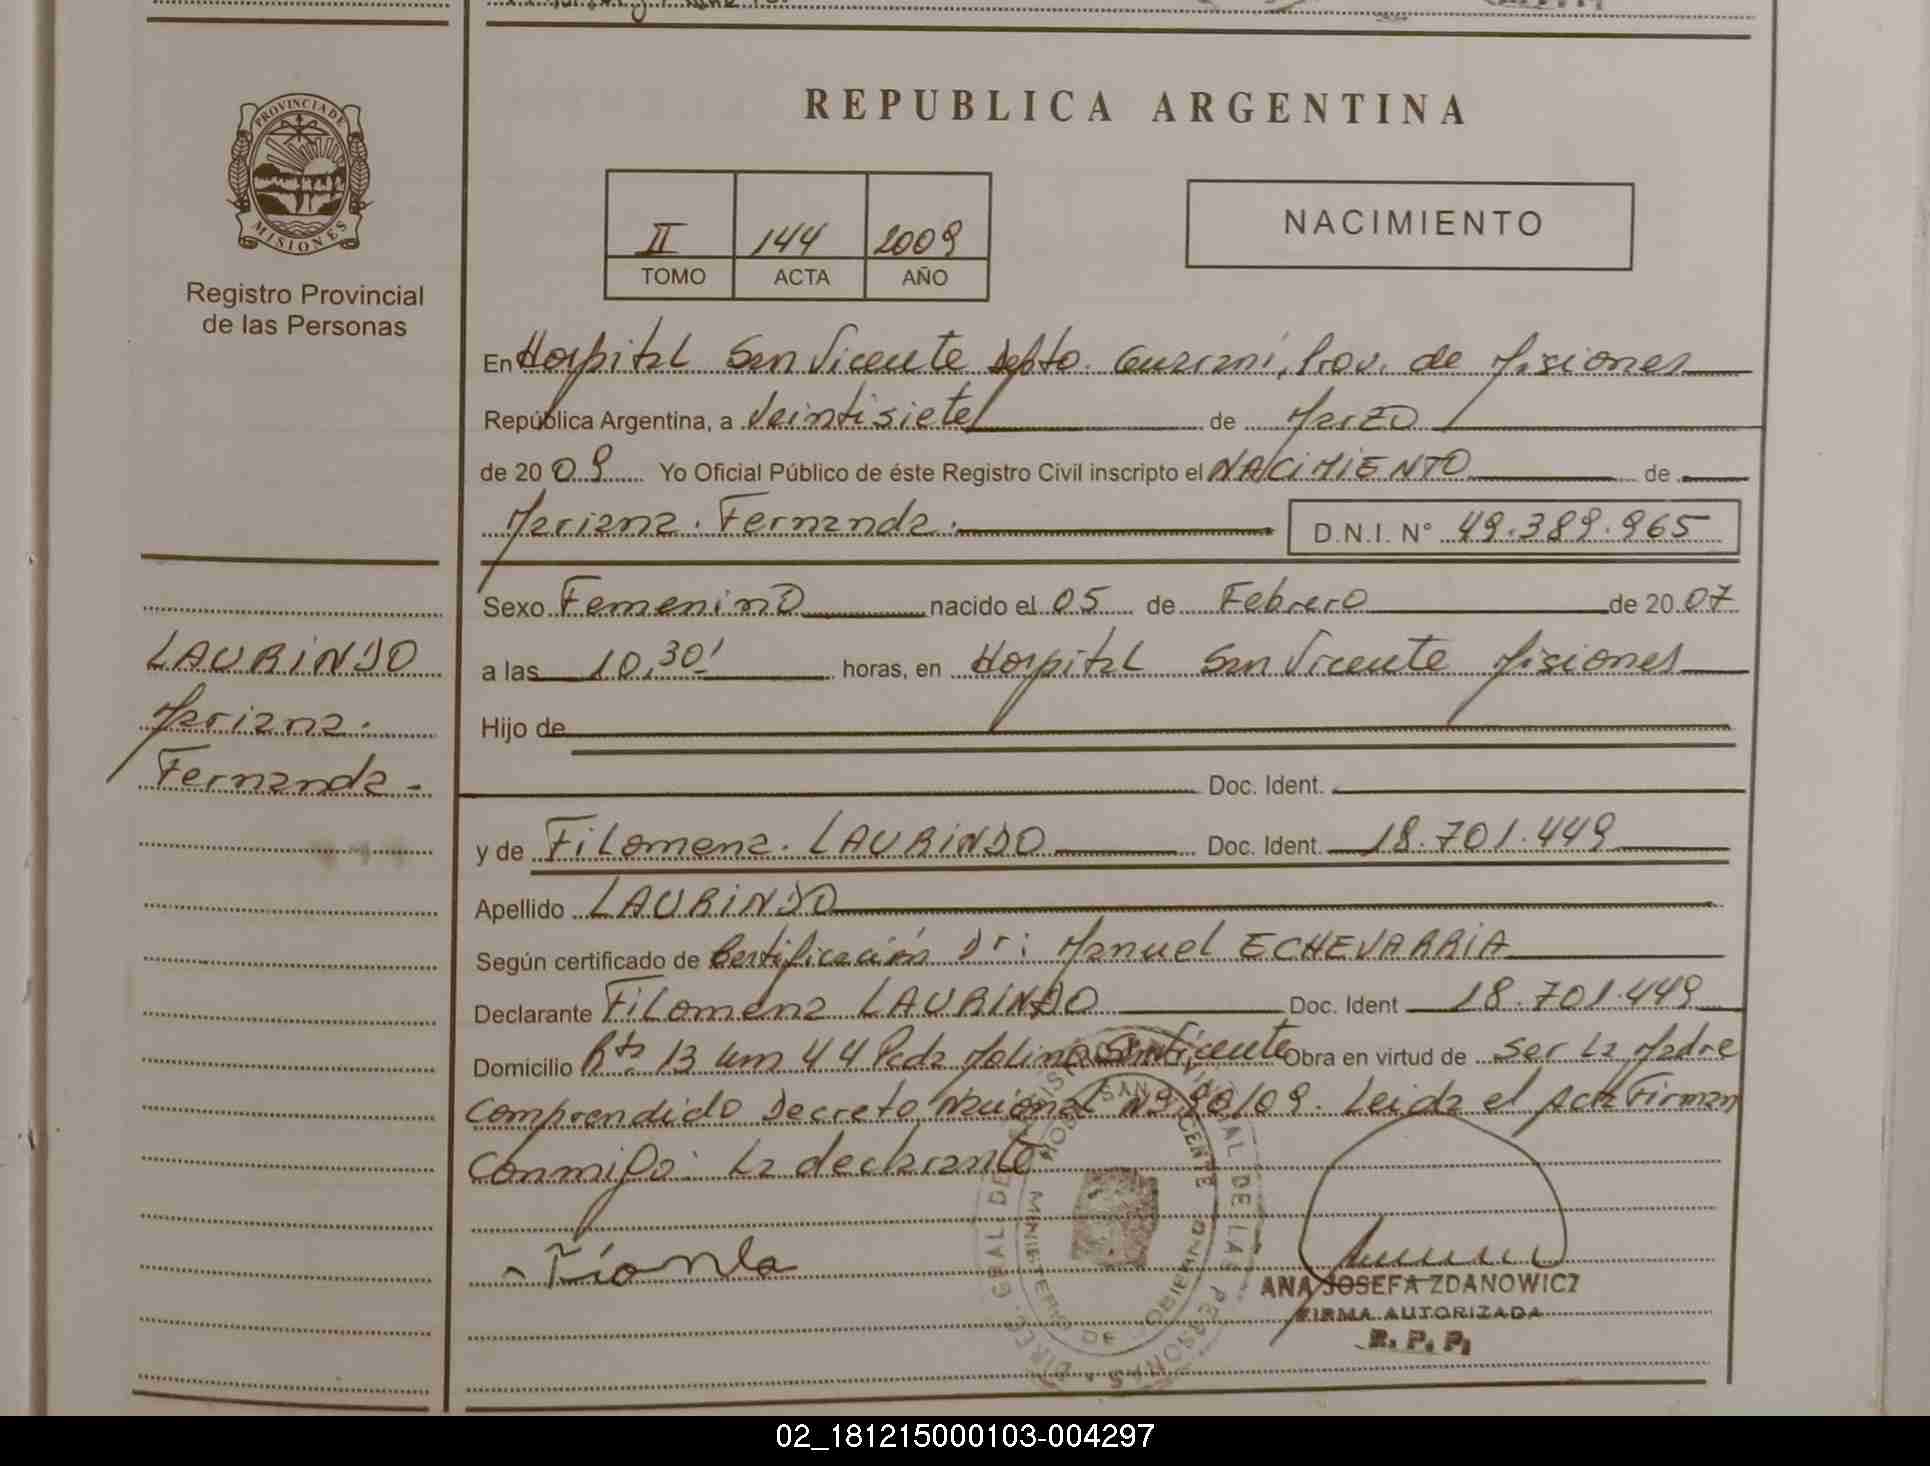 REPUBLICA ARGENTINA
PROVINCIA DE
MISIONES
Registro Provincial
de las Personas
II 144 2009
TOMO ACTA AÑO
NACIMIENTO
En Hospital San Vicente Depto. Guaraní, Prov. de Misiones
República Argentina, a Veintisiete de Marzo
de 20 09 Yo Oficial Público de éste Registro Civil inscripto el NACIMIENTO de
Mariana Fernanda. D.N.I. N° 49.389.965
Sexo Femenino nacido el 05 de Febrero de 20 07
a las 10,30' horas, en Hospital San Vicente Misiones
Hijo de
Doc. Ident.
y de Filomena. LAURINDO Doc. Ident. 18.701.449
Apellido LAURINDO
Según certificado de Certificación Dr: Manuel ECHEVARRIA
Declarante Filomena LAURINDO Doc. Ident 18.701.449
Domicilio Rta. 13 km 44 Pcda Molino San Vicente Obra en virtud de ser la Madre
Comprendido Decreto Nacional Nº 90/09. Leida el Acta Firman
Conmigo: La declarante
LAURINDO
Mariana.
Fernanda.-
SAN VICENTE
MINISTERIO DE GOBIERNO
ANA JOSEFA ZDANOWICZ
FIRMA AUTORIZADA
R. P. P.
02_181215000103-004297